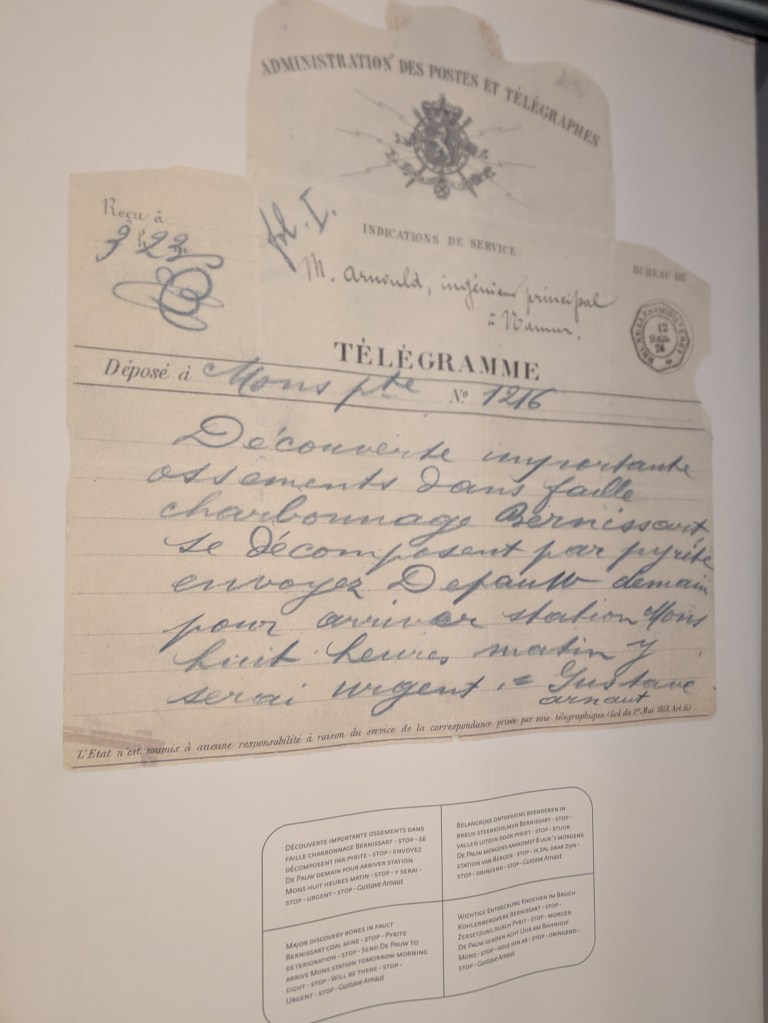 ADMINISTRATION DES POSTES ET TÉLÉGRAPHES
Reçu à
INDICATIONS DE SERVICE.
BUREAU DE
M. Arnould, ingénieur principal
= Namur.
12
TÉLÉGRAMME
Déposé à Mons pte No 1216
Découverte importante
ossements dans faille
charbonnage Bernissart
se décomposent par pyrite
envoyez Depauw demain
pour arriver station Mons
huit heures matin y
serai urgent. = Gustave
arnaut
L'Etat n'est soumis à aucune responsabilité à raison du service de la correspondance privée par voie télégraphique (Loi du 1er Mai 1851, Art. 6)
DÉCOUVERTE IMPORTANTE OSSEMENTS DANS
FAILLE CHARBONNAGE BERNISSART - STOP - SE
DÉCOMPOSENT PAR PYRITE - STOP - ENVOYEZ
DE PAUW DEMAIN POUR ARRIVER STATION
MONS HUIT HEURES MATIN - STOP - Y SERAI -
STOP - URGENT - STOP - Gustave Arnaut
BELANGRIJKE ONTDEKKING BEENDEREN IN
BREUK STEENKOOLMIJN BERNISSART - STOP -
VALLEN UITEEN DOOR PYRIET - STOP - STUUR
DE PAUW MORGEN AANKOMST 8 UUR 'S MORGENS
STATION VAN BERGEN - STOP - IK ZAL DAAR ZIJN -
STOP - DRINGEND - STOP - Gustave Arnaut
MAJOR DISCOVERY BONES IN FAULT
BERNISSART COAL MINE - STOP - PYRITE
DETERIORATION - STOP - SEND DE PAUW TO
ARRIVE MONS STATION TOMORROW MORNING
EIGHT - STOP - WILL BE THERE - STOP -
URGENT - STOP - Gustave Arnaut
WICHTIGE ENTDECKUNG KNOCHEN IM BRUCH
KOHLENBERGWERK BERNISSART - STOP -
ZERSETZUNG DURCH PYRIT - STOP - MORGEN
DE PAUW SENDEN ACHT UHR AM BAHNHOF
MONS - STOP - HOLE IHN AB - STOP - DRINGEND -
STOP - Gustave Arnaut